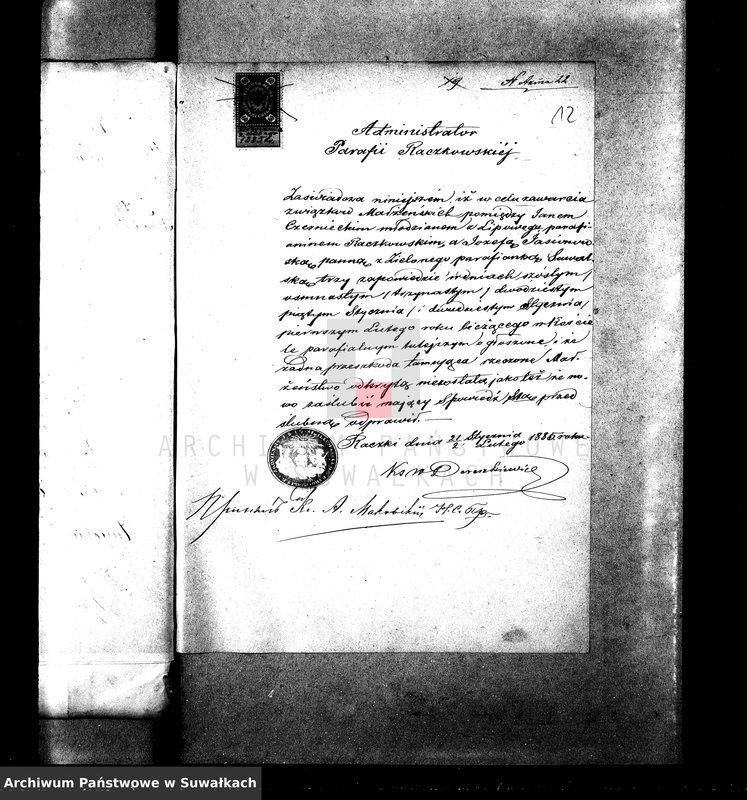 N Aktu 22
12
Administrator
Parafii Raczkowskiéj
Zaświadcza niniejszém, iż w celu zawarcia
związków Małżeńskich pomiędzy Janem
Czernieckim młodzianem z Lipowego, parafi-
aninem Raczkowskim, a Józefą Jasionow-
ską, panną z Zielonego parafianką Suwal-
ską, trzy zapowiedzie w dniach szóstym/
osmnastym, / trzynastym / dwudziestym
piątym Stycznia, / i dwudziestym Stycznia/
pierwszym Lutego roku bieżącego w Koście-
le parafialnym tutejszym ogłoszone, i że
żadna przeszkoda tamująca rzeczone Mał-
żeństwo odkrytą niezostała, jako téż, że no-
wo zaślubić mający Spowiedź Stą przed
ślubną odprawił. —
Raczki dnia 21 Stycznia
Lutego 1886 roku
Ks.
Кс. А.
ARCHIWUM PAŃSTWOWE
W SUWAŁKACH
Archiwum Państwowe w Suwałkach